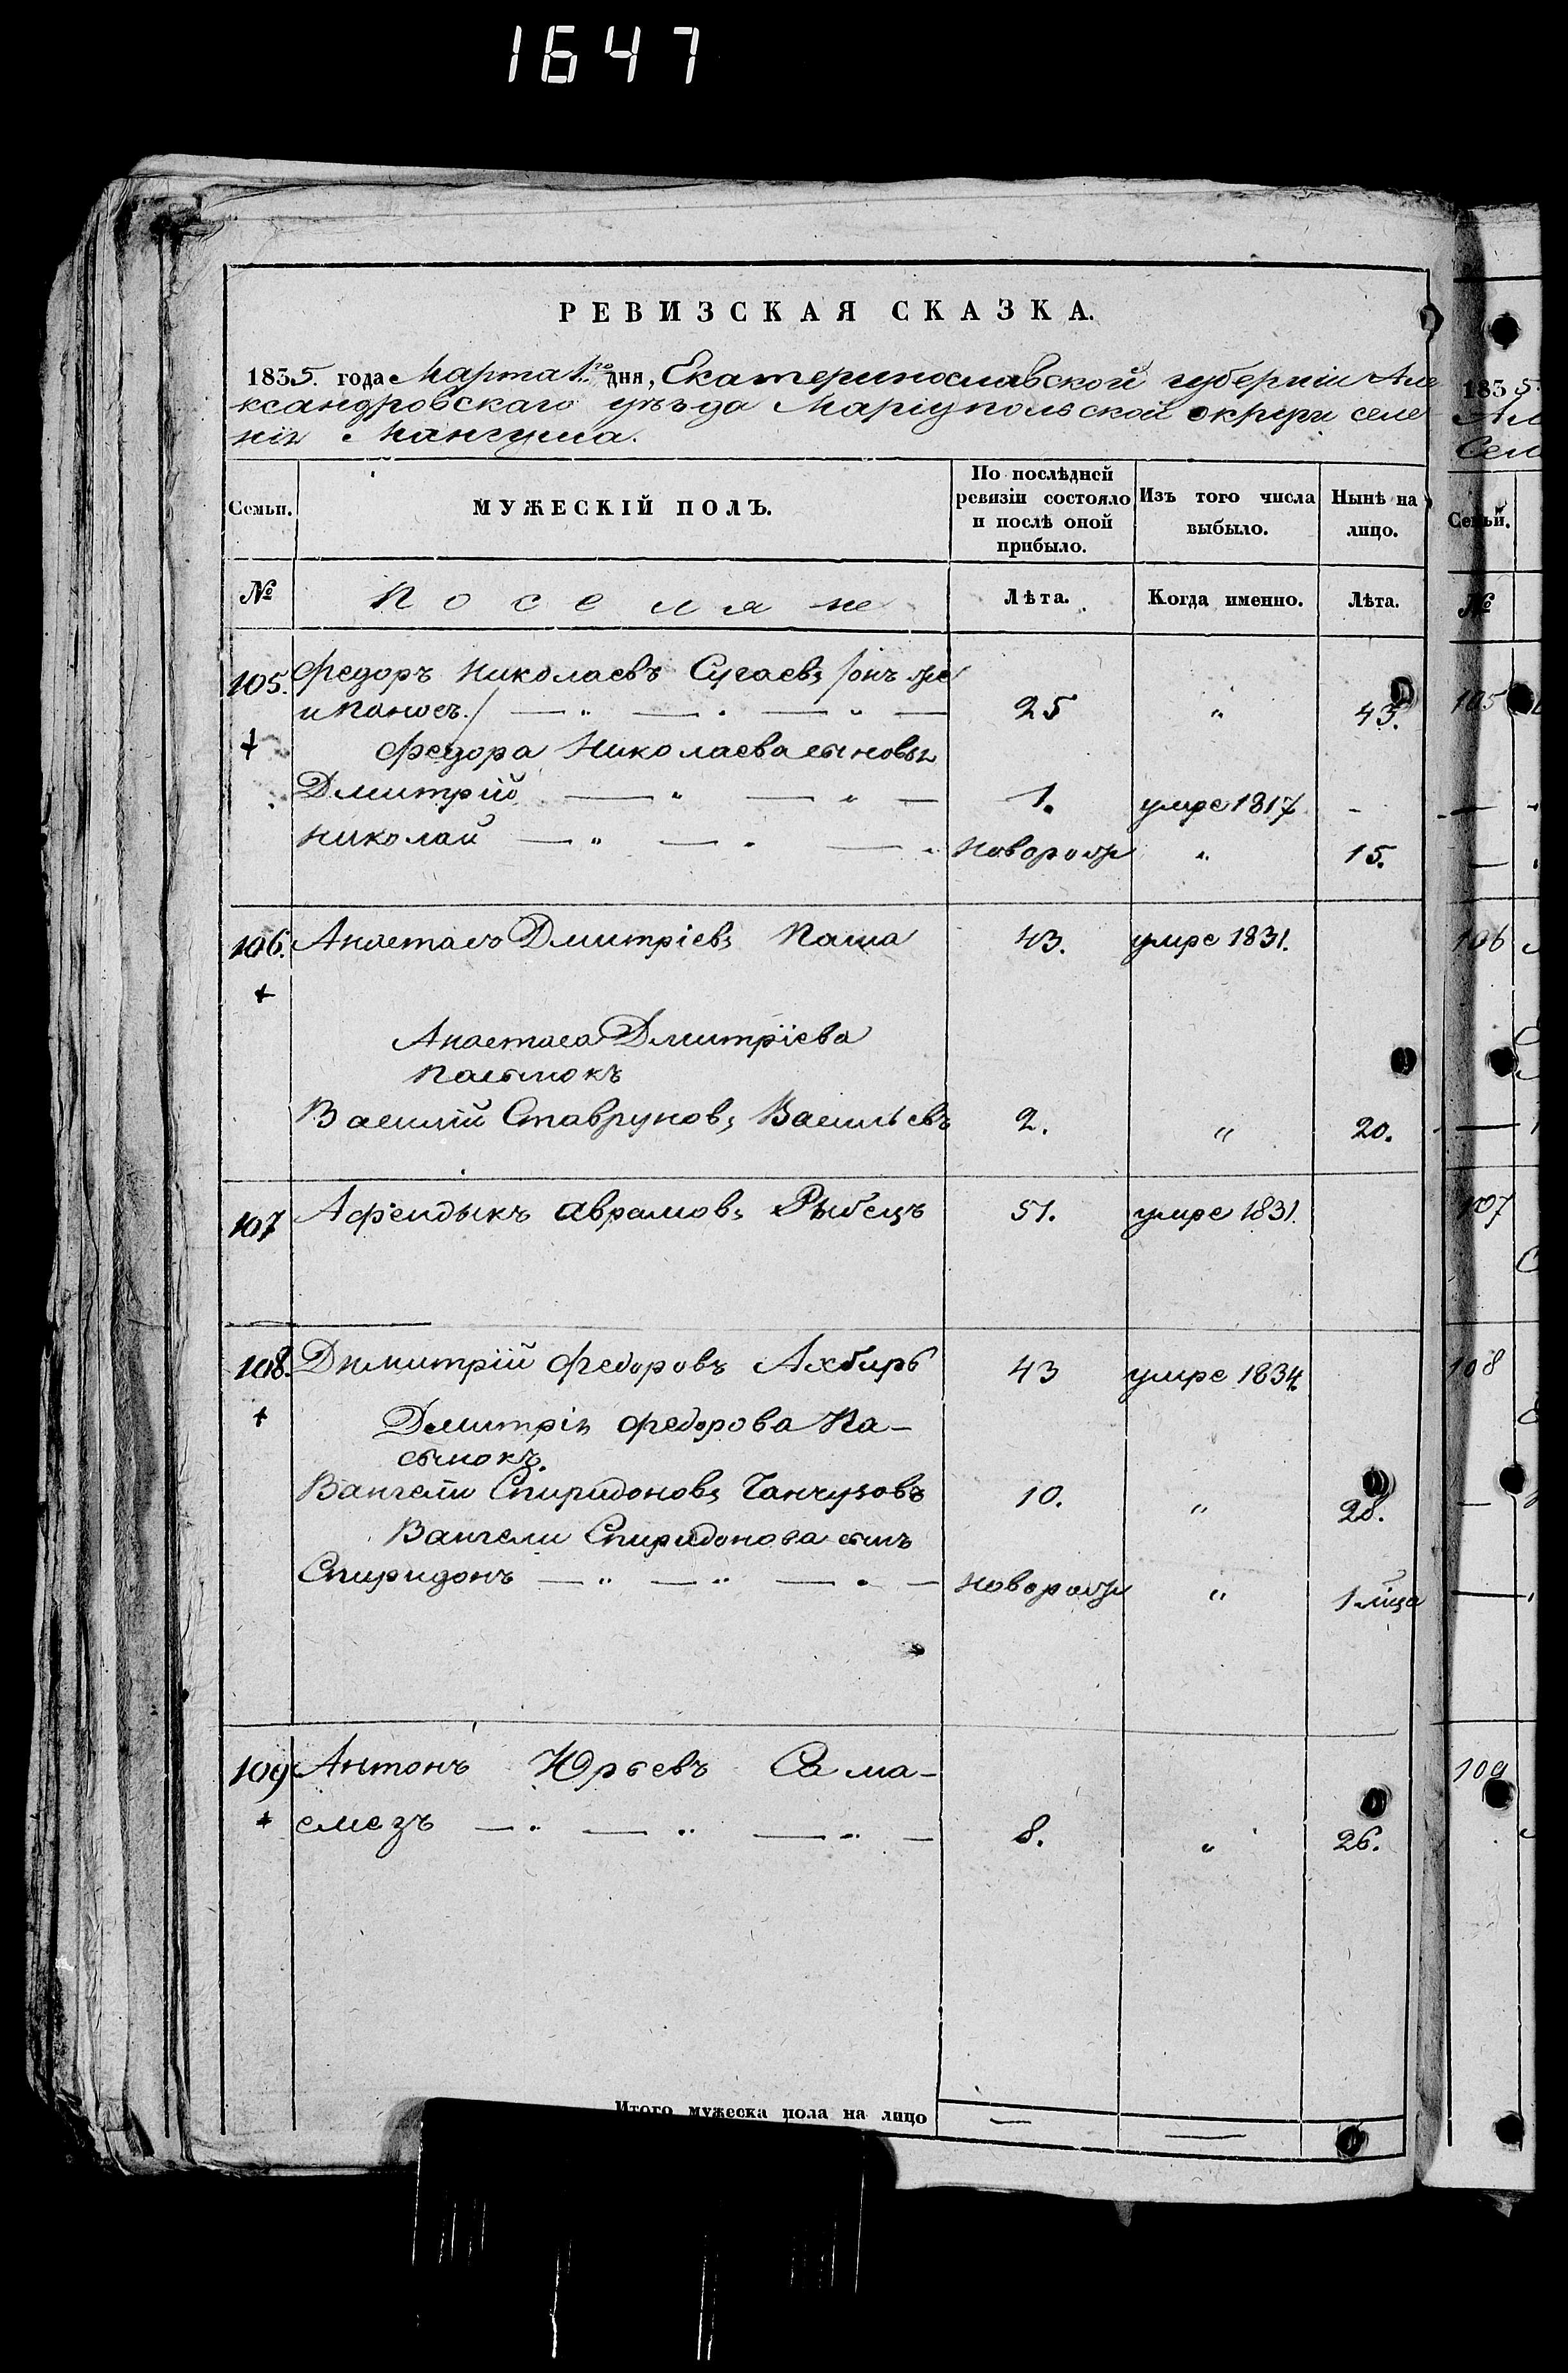 1647
РЕВИЗСКАЯ СКАЗКА.
1835. года Марта 1го дня, Екатеринославской губерніи Але
ксандровскаго уѣзда Маріупольской округи селе
нія Мангуша.
Семьи. МУЖЕСКІЙ ПОЛЪ. По послѣдней ревизіи состояло и послѣ оной прибыло. Изъ того числа выбыло. Нынѣ на лицо.
№ Поселяне Лѣта. Когда именно. Лѣта.
105. Федоръ Николаевъ Сугаевъ /онъ же
и Паносъ./ — „ — „ — „ — 25 „ 43.
+ Федора Николаева сыновья
Дмитрій — „ — „ — 1. умре 1817 -
Николай — „ — „ — „ новорож 15.
106. Анастасъ Дмитріевъ Паша 43. умре 1831.
+
Анастаса Дмитріева
пасынокъ
Василій Ставруновъ Васильевъ 2. „ 20.
107 Афендыкъ Аврамовъ Рыбецъ 51. умре 1831.
108. Димитрій Федоровъ Ахбиръ 43 умре 1834
+ Дмитрія Федорова Па-
сынокъ.
Вангели Спиридоновъ Чанчуковъ 10. „ 28.
Вангели Спиридонова сынъ
Спиридонъ — „ — „ — „ — новорож „ 1 мѣца
109 Антонъ Юрьевъ Сама-
+ смезъ — „ — „ — „ — 8. „ 26.
Итого мужеска пола на лицо — —
1835
105
106
107
108
109
Семьи.
№